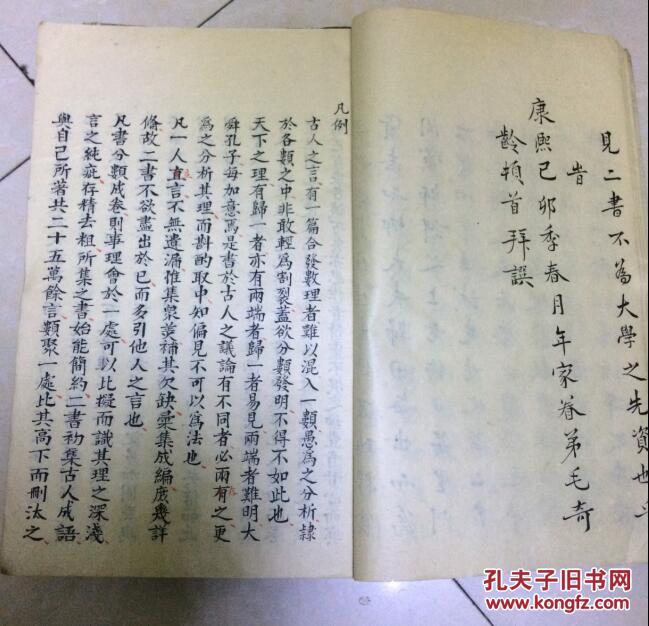 見二書不為大學之先資也
旹
康熙己卯季春月年家眷弟毛奇
齡頓首拜譔
凡例
古人之言有一篇合發數理者難以混入一類愚為之分析隷
於各類之中非敢輕為割裂蓋欲分類發明不得不如此也
天下之理有歸一者亦有兩端者歸一者易見兩端者難明大
舜孔子每加意焉是書於古人之議論有不同者必兩有之更
為之分析其理而斟酌取中知偏見不可以為法也
凡一人直言不無遺漏惟集衆美補其欠缺彙集成編庶幾詳
備故二書不欲盡出於已而多引他人之言也
凡書分類成卷則事理會於一處可以比擬而識其理之深淺
言之純疵存精去粗所集之書始能簡約二書初集古人成語
與自己所著共二十五萬餘言類聚一處比其高下而刪汰之
孔夫子旧书网
www.kongfz.com